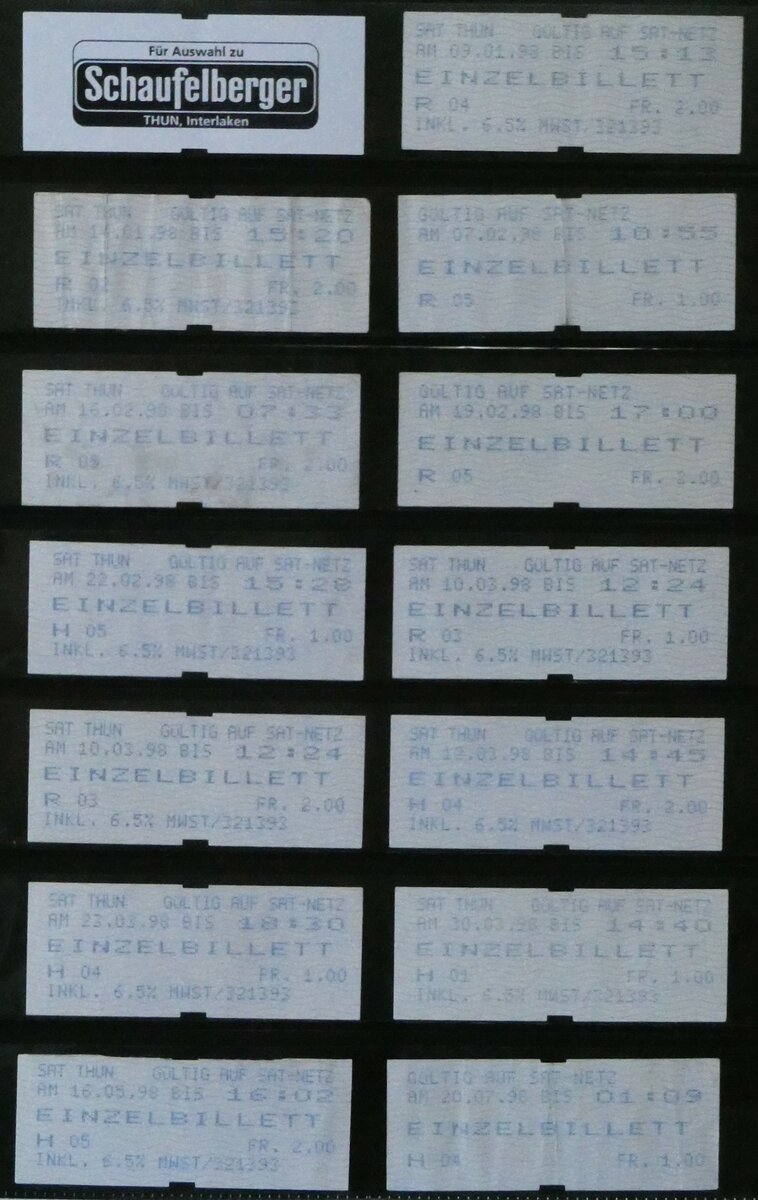 Für Auswahl zu
Schaufelberger
THUN, Interlaken
SAT THUN GÜLTIG AUF SAT-NETZ
AM 09.01.98 BIS 15:13
EINZELBILLETT
R 04 FR. 2.00
INKL. 6.5% MWST/321393
SAT THUN GÜLTIG AUF SAT-NETZ
AM 14.01.98 BIS 15:20
EINZELBILLETT
R 02 FR. 2.00
INKL. 6.5% MWST/321393
GÜLTIG AUF SAT-NETZ
AM 07.02.98 BIS 10:55
EINZELBILLETT
R 05 FR. 1.00
SAT THUN GÜLTIG AUF SAT-NETZ
AM 16.02.98 BIS 07:33
EINZELBILLETT
R 05 FR. 2.00
INKL. 6.5% MWST/321393
GÜLTIG AUF SAT-NETZ
AM 19.02.98 BIS 17:00
EINZELBILLETT
R 05 FR. 2.00
SAT THUN GÜLTIG AUF SAT-NETZ
AM 22.02.98 BIS 15:28
EINZELBILLETT
H 05 FR. 1.00
INKL. 6.5% MWST/321393
SAT THUN GÜLTIG AUF SAT-NETZ
AM 10.03.98 BIS 12:24
EINZELBILLETT
R 03 FR. 1.00
INKL. 6.5% MWST/321393
SAT THUN GÜLTIG AUF SAT-NETZ
AM 10.03.98 BIS 12:24
EINZELBILLETT
R 03 FR. 2.00
INKL. 6.5% MWST/321393
SAT THUN GÜLTIG AUF SAT-NETZ
AM 12.03.98 BIS 14:45
EINZELBILLETT
H 04 FR. 2.00
INKL. 6.5% MWST/321393
SAT THUN GÜLTIG AUF SAT-NETZ
AM 23.03.98 BIS 18:30
EINZELBILLETT
H 04 FR. 1.00
INKL. 6.5% MWST/321393
SAT THUN GÜLTIG AUF SAT-NETZ
AM 30.03.98 BIS 14:40
EINZELBILLETT
H 01 FR. 1.00
INKL. 6.5% MWST/321393
SAT THUN GÜLTIG AUF SAT-NETZ
AM 16.05.98 BIS 16:02
EINZELBILLETT
H 05 FR. 2.00
INKL. 6.5% MWST/321393
GÜLTIG AUF SAT-NETZ
AM 20.07.98 BIS 01:09
EINZELBILLETT
H 04 FR. 1.00